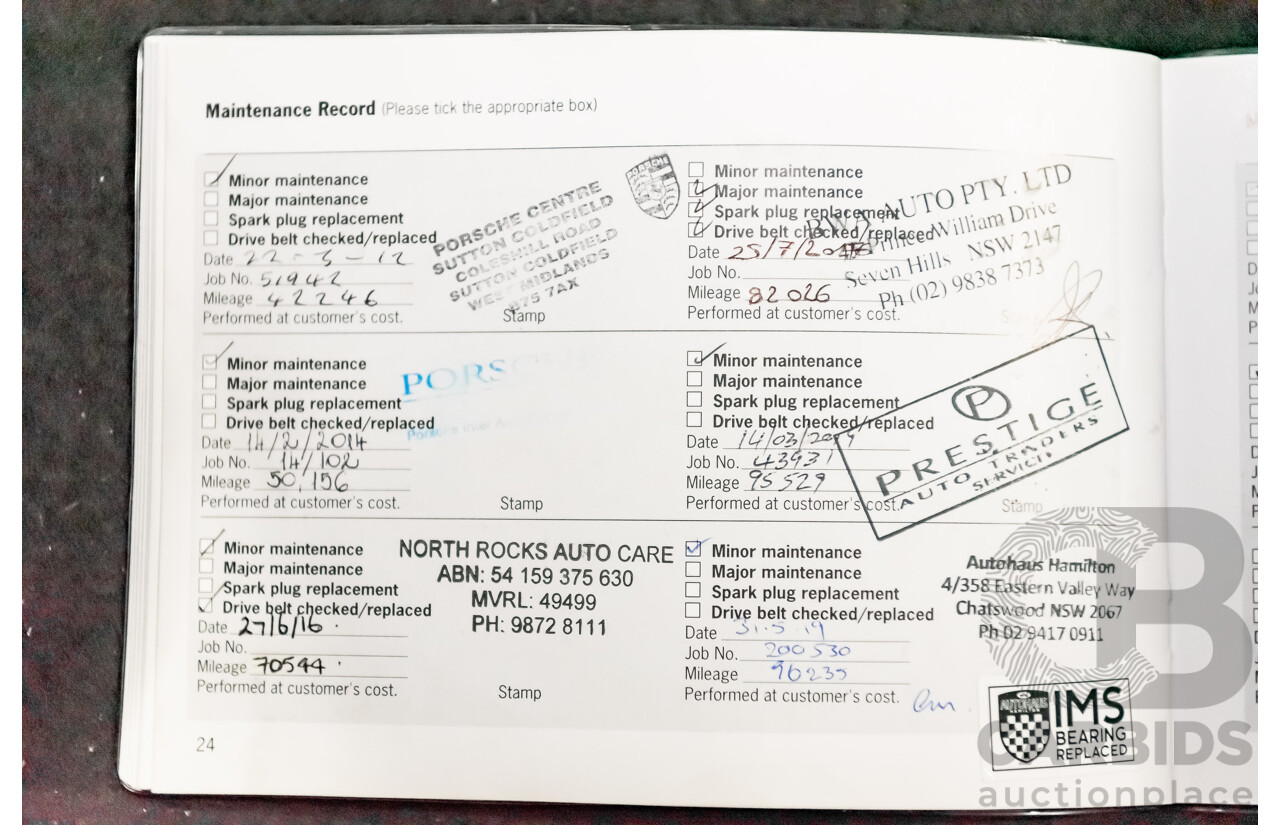 Maintenance Record (Please tick the appropriate box)
Minor maintenance
Major maintenance
Spark plug replacement
Drive belt checked/replaced
Date 22-3-12
Job No. 51942
Mileage 42246
Performed at customer's cost.
Stamp
PORSCHE
PORSCHE CENTRE
SUTTON COLDFIELD
COLESHILL ROAD
SUTTON COLDFIELD
WEST MIDLANDS
B75 7AX
Minor maintenance
Major maintenance
Spark plug replacement
Drive belt checked/replaced
Date 25/7/2017
Job No.
Mileage 82026
Performed at customer's cost.
Stamp
BWA AUTO PTY. LTD
Prince William Drive
Seven Hills NSW 2147
Ph (02) 9838 7373
Minor maintenance
Major maintenance
Spark plug replacement
Drive belt checked/replaced
Date 14/2/2014
Job No. 14/102
Mileage 50,156
Performed at customer's cost.
Stamp
PORSCHE
Minor maintenance
Major maintenance
Spark plug replacement
Drive belt checked/replaced
Date 14/03/2019
Job No. 43931
Mileage 95529
Performed at customer's cost.
Stamp
P
PRESTIGE
AUTO TRADERS
SERVICE
Minor maintenance
Major maintenance
Spark plug replacement
Drive belt checked/replaced
Date 27/6/16
Job No.
Mileage 70544
Performed at customer's cost.
Stamp
NORTH ROCKS AUTO CARE
ABN: 54 159 375 630
MVRL: 49499
PH: 9872 8111
Minor maintenance
Major maintenance
Spark plug replacement
Drive belt checked/replaced
Date 31.5.19
Job No. 200530
Mileage 96235
Performed at customer's cost.
Autohaus Hamilton
4/358 Eastern Valley Way
Chatswood NSW 2067
Ph 02 9417 0911
AUTOHAUS
IMS
BEARING
REPLACED
24
CARBIDS
auctionplace